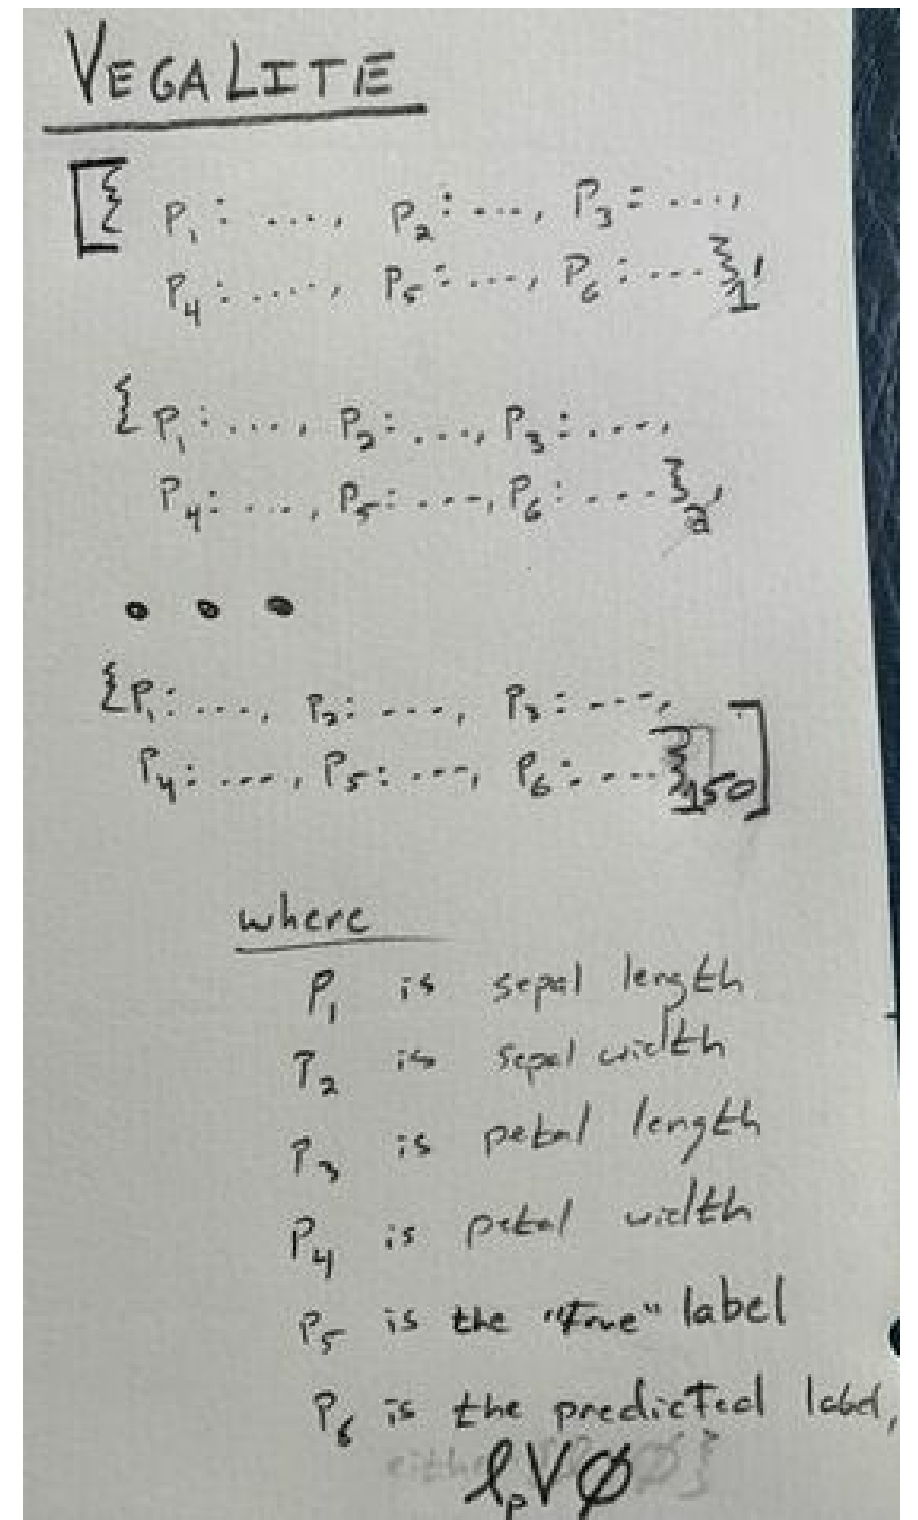 VEGALITE
[{ P₁: ...., P₂: ..., P₃: ....,
P₄: ....., P₅: ...., P₆: ....}₁,
{ P₁: ...., P₂: ...., P₃: ....,
P₄: ...., P₅: ...., P₆: ....}₂,
• • •
{P₁: ...., P₂: ...., P₃: ....,
P₄: ...., P₅: ...., P₆: ....}₁₅₀]
where
P₁ is sepal length
P₂ is sepal width
P₃ is petal length
P₄ is petal width
P₅ is the "true" label
P₆ is the predicted label,
ℓₚ V ∅